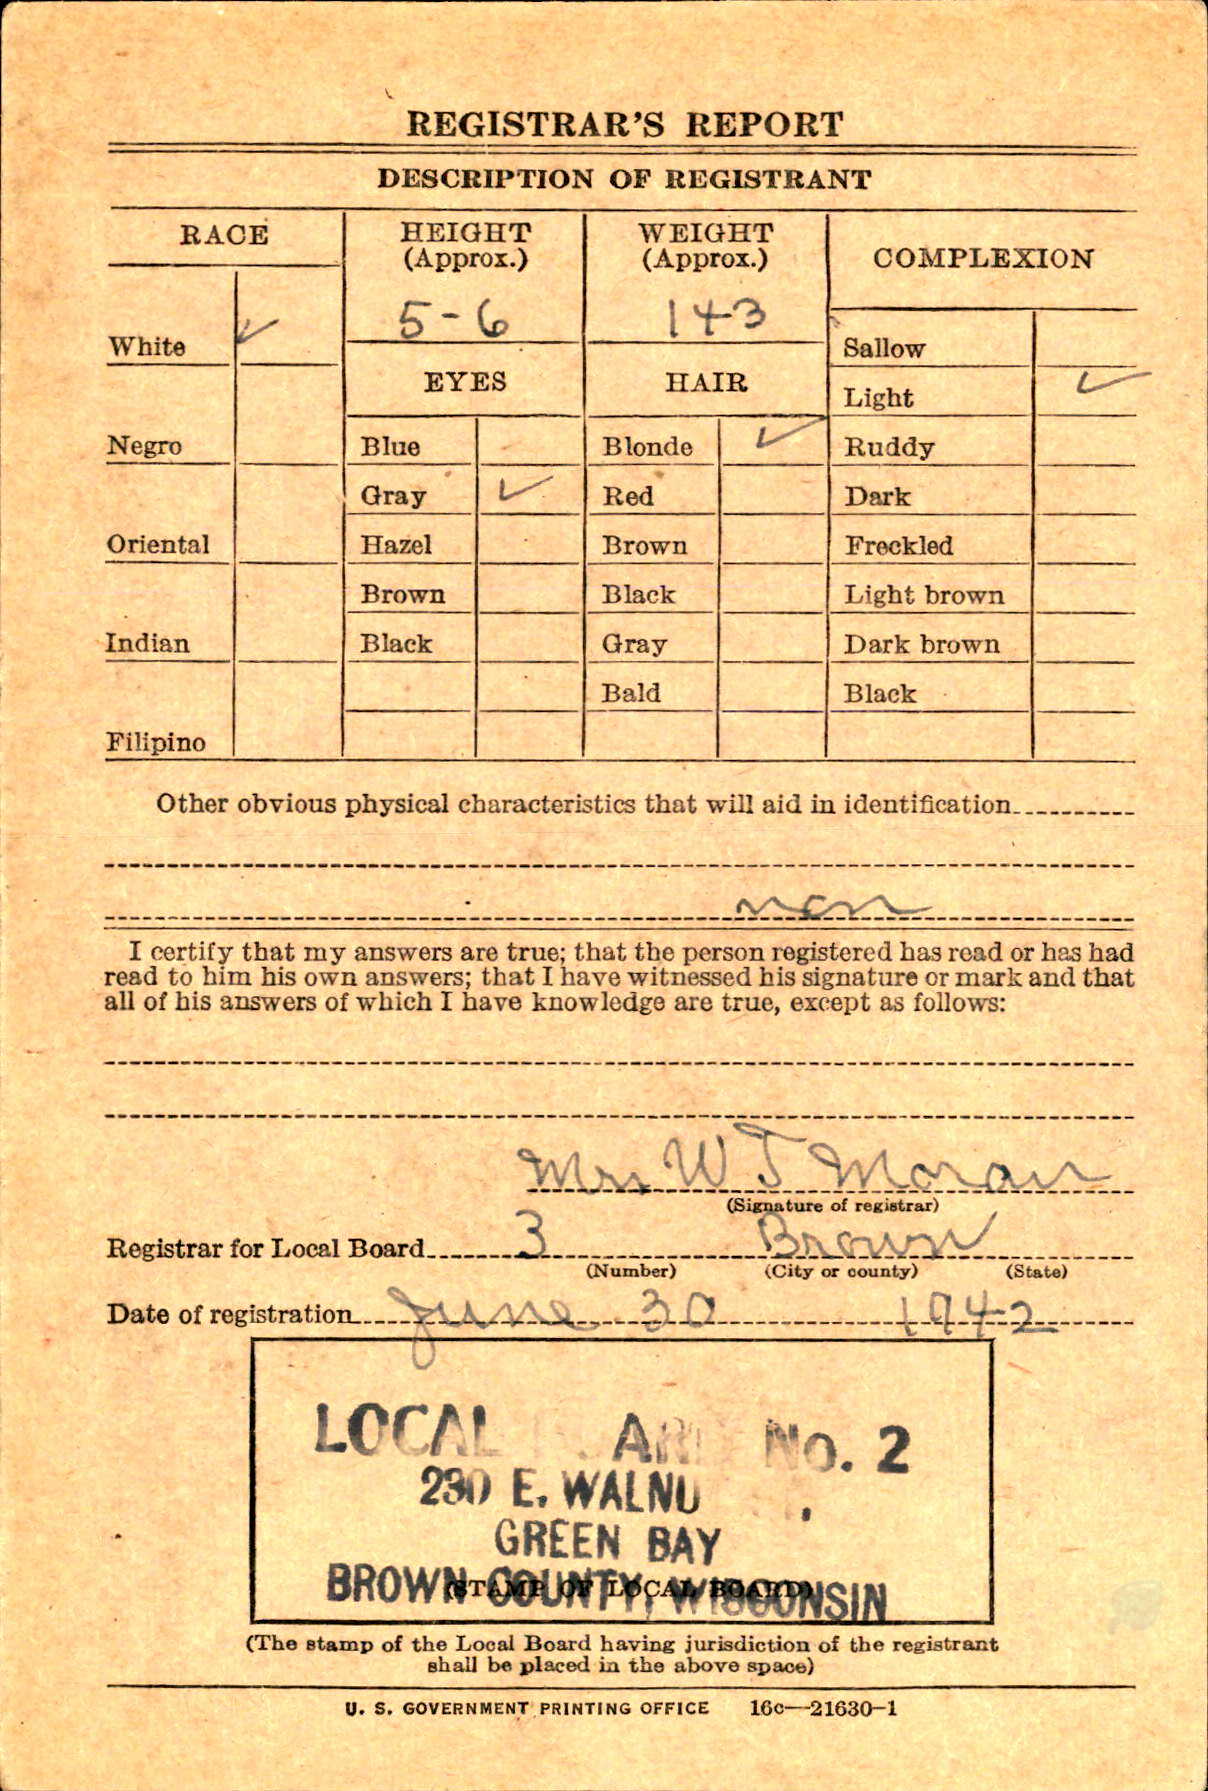 REGISTRAR'S REPORT
DESCRIPTION OF REGISTRANT
RACE
White ✓
Negro
Oriental
Indian
Filipino
HEIGHT
(Approx.)
5-6
EYES
Blue
Gray ✓
Hazel
Brown
Black
WEIGHT
(Approx.)
143
HAIR
Blonde ✓
Red
Brown
Black
Gray
Bald
COMPLEXION
Sallow
Light ✓
Ruddy
Dark
Freckled
Light brown
Dark brown
Black
Other obvious physical characteristics that will aid in identification
non
I certify that my answers are true; that the person registered has read or has had
read to him his own answers; that I have witnessed his signature or mark and that
all of his answers of which I have knowledge are true, except as follows:
Mrs W J Moran
(Signature of registrar)
Registrar for Local Board 3 Brown
(Number) (City or county) (State)
Date of registration June 30 1942
LOCAL No. 2
230 E. WALNU
GREEN BAY
BROWN COUNTY, WISCONSIN
(STAMP OF LOCAL BOARD)
(The stamp of the Local Board having jurisdiction of the registrant
shall be placed in the above space)
U. S. GOVERNMENT PRINTING OFFICE 16c—21630-1